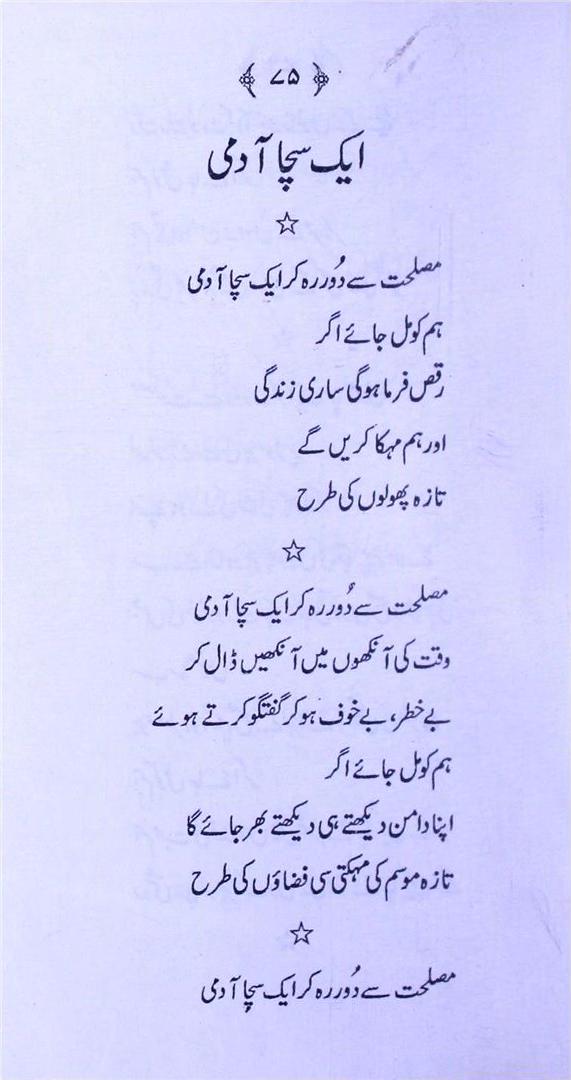 ۷۵
ایک سچا آدمی
☆
مصلحت سے دُور رہ کر ایک سچا آدمی
ہم کو مل جائے اگر
رقص فرما ہوگی ساری زندگی
اور ہم مہکا کریں گے
تازہ پھولوں کی طرح
☆
مصلحت سے دُور رہ کر ایک سچا آدمی
وقت کی آنکھوں میں آنکھیں ڈال کر
بے خطر، بے خوف ہو کر گفتگو کرتے ہوئے
ہم کو مل جائے اگر
اپنا دامن دیکھتے ہی دیکھتے بھر جائے گا
تازہ موسم کی مہکتی سی فضاؤں کی طرح
☆
مصلحت سے دُور رہ کر ایک سچا آدمی